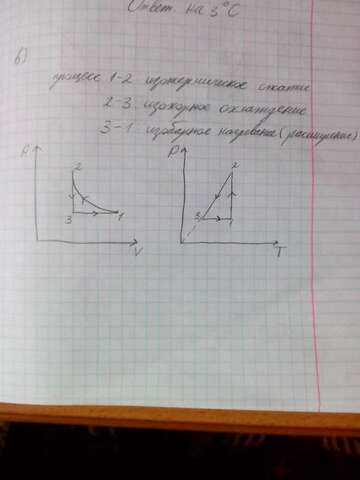 Ответ. на 3°С
в)
процесс 1-2 изотермическое сжатие
2-3 изохорное охлаждение
3-1 изобарное нагревание (расширение)
P P
2 2
3 1 3 1
V T